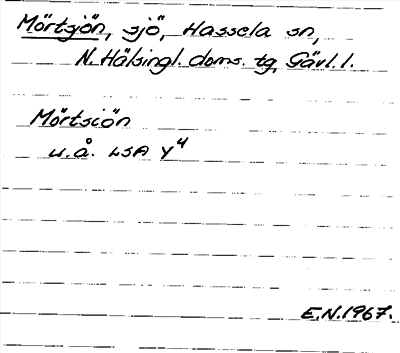 Mörtsjön, sjö, Hassela sn,
N. Hälsingl. doms. tg, Gävl. l.
Mörtsiön
u.å. LSA Y4
E.N. 1967.